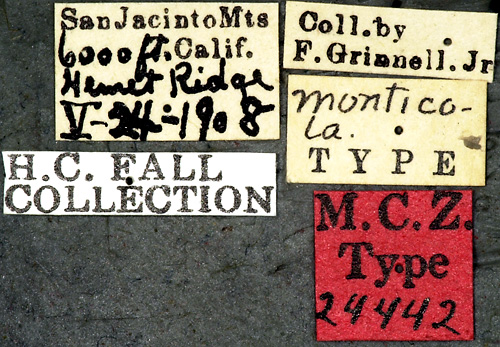 San Jacinto Mts
6000 ft. Calif.
Hemet Ridge
V-24-1908
Coll. by
F. Grinnell. Jr
monticо-
la.
TYPE
H.C. FALL
COLLECTION
M.C.Z.
Type
24442